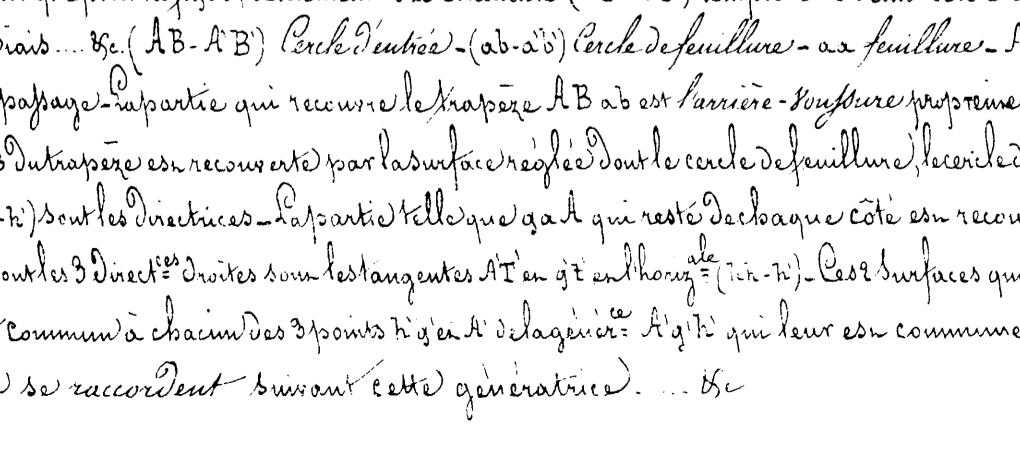 biais.... &c. (AB - A'B') Cercle d'entrée - (ab - a'b') Cercle de feuillure - aa feuillure -
passage - La partie qui recouvre le trapèze ABab est l'arrière-voussure propreme
du trapèze est recouverte par la surface réglée dont le cercle de feuillure, le cercle d
-h') sont les directrices - La partie telle que gaA qui reste de chaque côté est recou
ont les 3 direct.ces droites sont les tangentes A'T' et g't' et l'horiz.ale (hh - h') - Ces 2 surfaces qui
commun à chacun des 3 points h' g' et A' de la génér.ce A'g'h' qui leur est commune
se raccordent suivant cette génératrice. ... &c